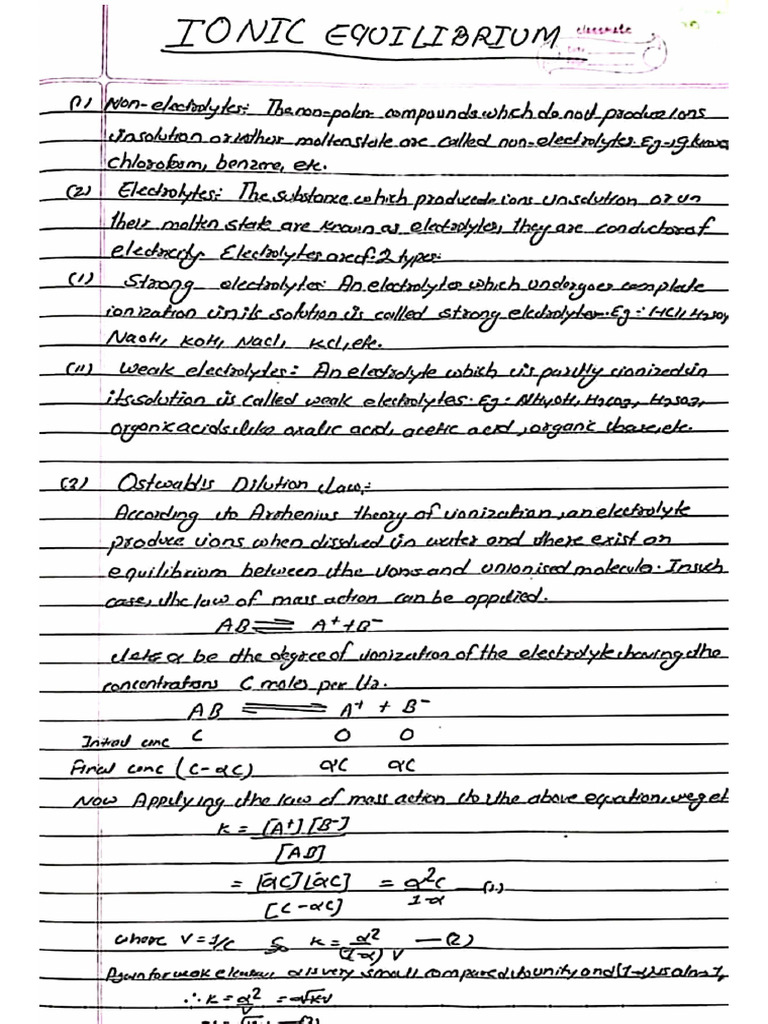 IONIC EQUILIBRIUM
classmate
(1) Non-electrolytes: The non-polar compounds which do not produce ions
in solution or in their molten state are called non-electrolytes. Eg →
chloroform, benzene, etc.
(2) Electrolytes: The substance which produce ions in solution or in
their molten state are known as electrolytes, they are conductor of
electricity. Electrolytes are of 2 types:
(i) Strong electrolytes: An electrolytes which undergoes complete
ionization in its solution is called strong electrolytes. Eg: HCl, H2SO4
NaOH, KOH, NaCl, KCl, etc.
(ii) Weak electrolytes: An electrolyte which is partly ionized in
its solution is called weak electrolytes. Eg: NH4OH, H2CO3, H2SO3,
organic acids like oxalic acid, acetic acid, organic base, etc.
(3) Ostwald's Dilution law:
According to Arrhenius theory of ionization, an electrolyte
produce ions when dissolved in water and there exist an
equilibrium between the ions and unionised molecule. In such
case, the law of mass action can be applied.
AB ⇌ A+ + B-
Let α be the degree of ionization of the electrolyte having the
concentrations C moles per ltr.
AB ⇌ A+ + B-
Initial conc C 0 0
Final conc (C-αC) αC αC
Now Applying the law of mass action to the above equation, we get
K = [A+][B-]
[AB]
= [αC][αC] = α²C —(1)
[C-αC] 1-α
where V = 1/C So K = α² —(2)
(1-α) V
Again for weak α is very small compared to unity and (1-α) is almost 1,
∴ K = α² = α√KV
V